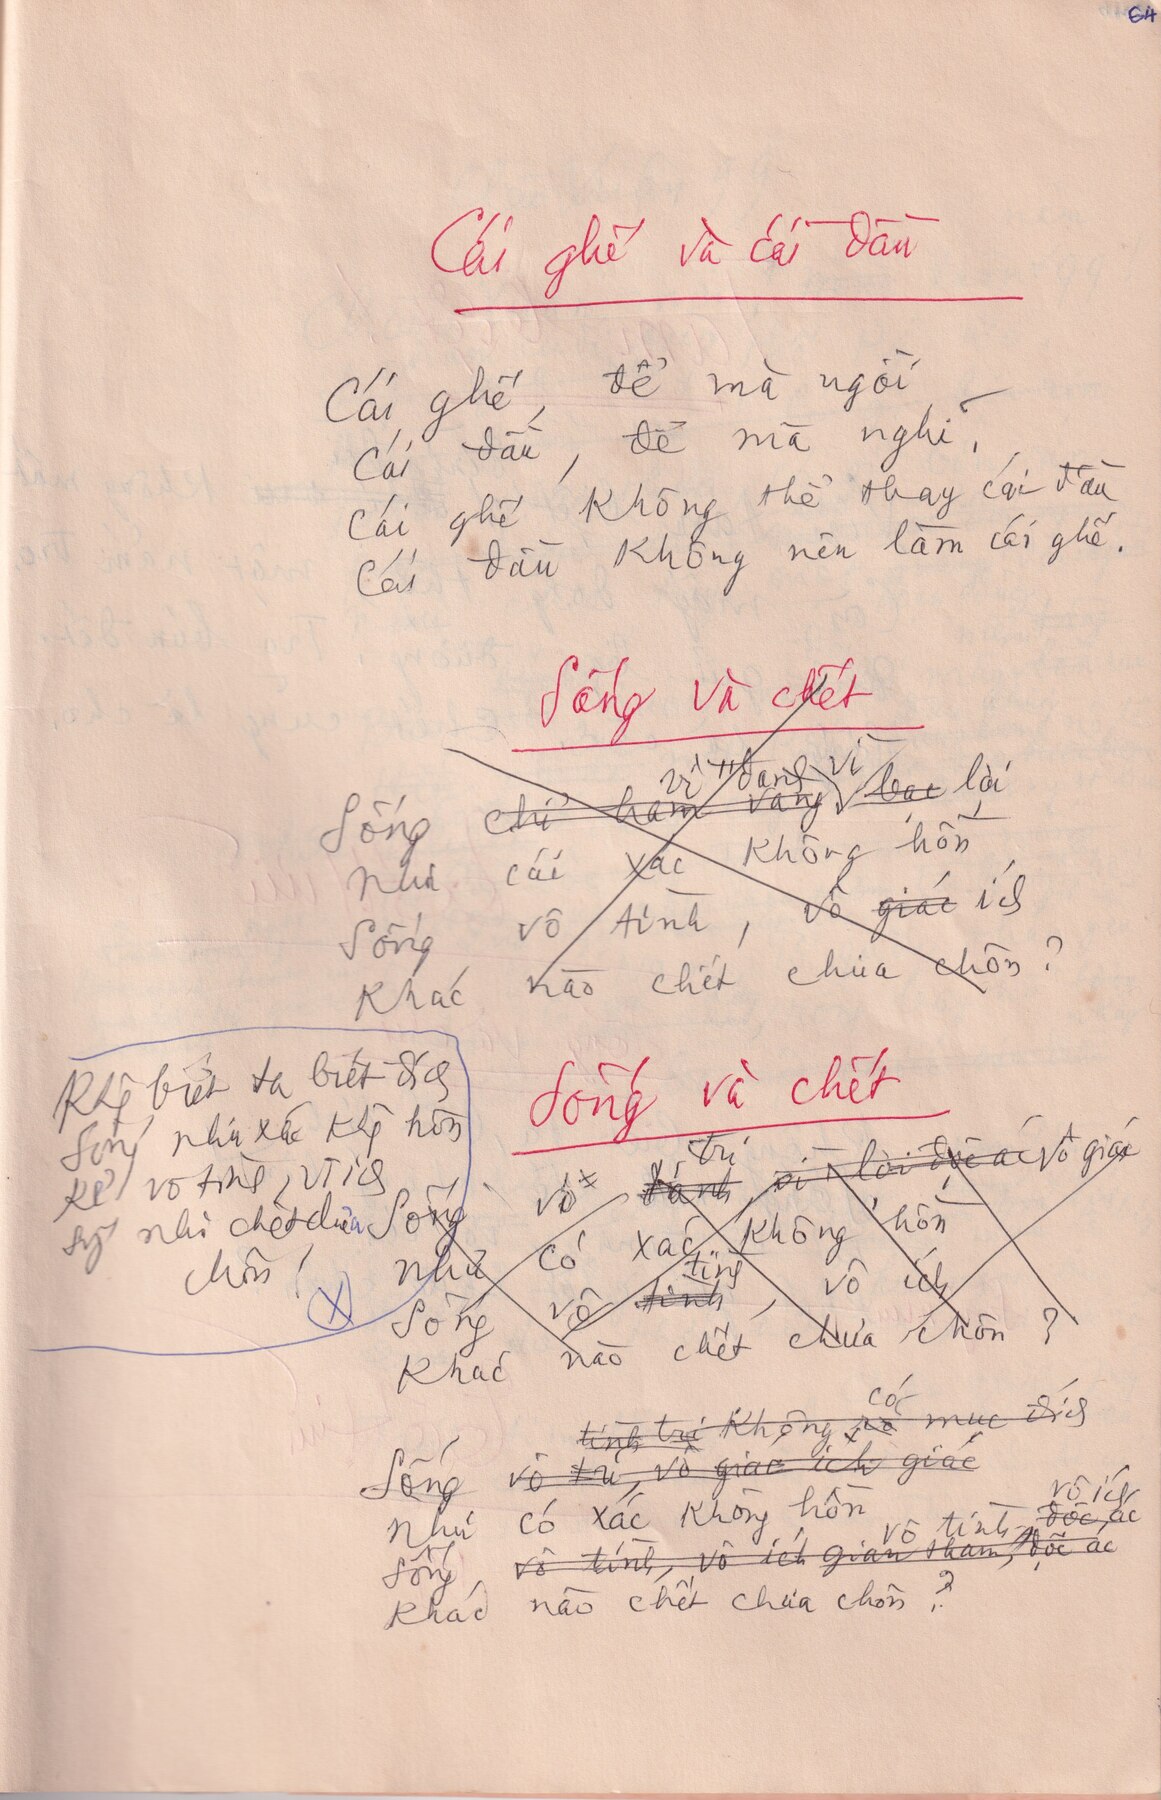 64
Cái ghế và cái đầu
Cái ghế, để mà ngồi
Cái đầu, để mà nghĩ.
Cái ghế không thể thay cái đầu
Cái đầu không nên làm cái ghế.
Sống và chết
vì danh vì
Sống chỉ ham vàng bạc lòi
Như cái xác không hồn
Sống vô tình, vô giác ích
Khác nào chết chưa chôn?
Khg biết ta biết đích
Sống như xác khg hồn
Kẻ vô tình, vô ích
như chết chưa
chôn!
Sống và chết
trí
Sống vô đánh vì lời độc ác vô giác
Như có xác không hồn
tình
Sống vô tình, vô ích
Khác nào chết chưa chôn?
có
tình trí không rõ mục đích
Sống vô trí, vô giác ích giác
Như có xác không hồn
vô ích
vô tình, độc ác
Sống vô tình, vô ích gian tham, độc ác
Khác nào chết chưa chôn?